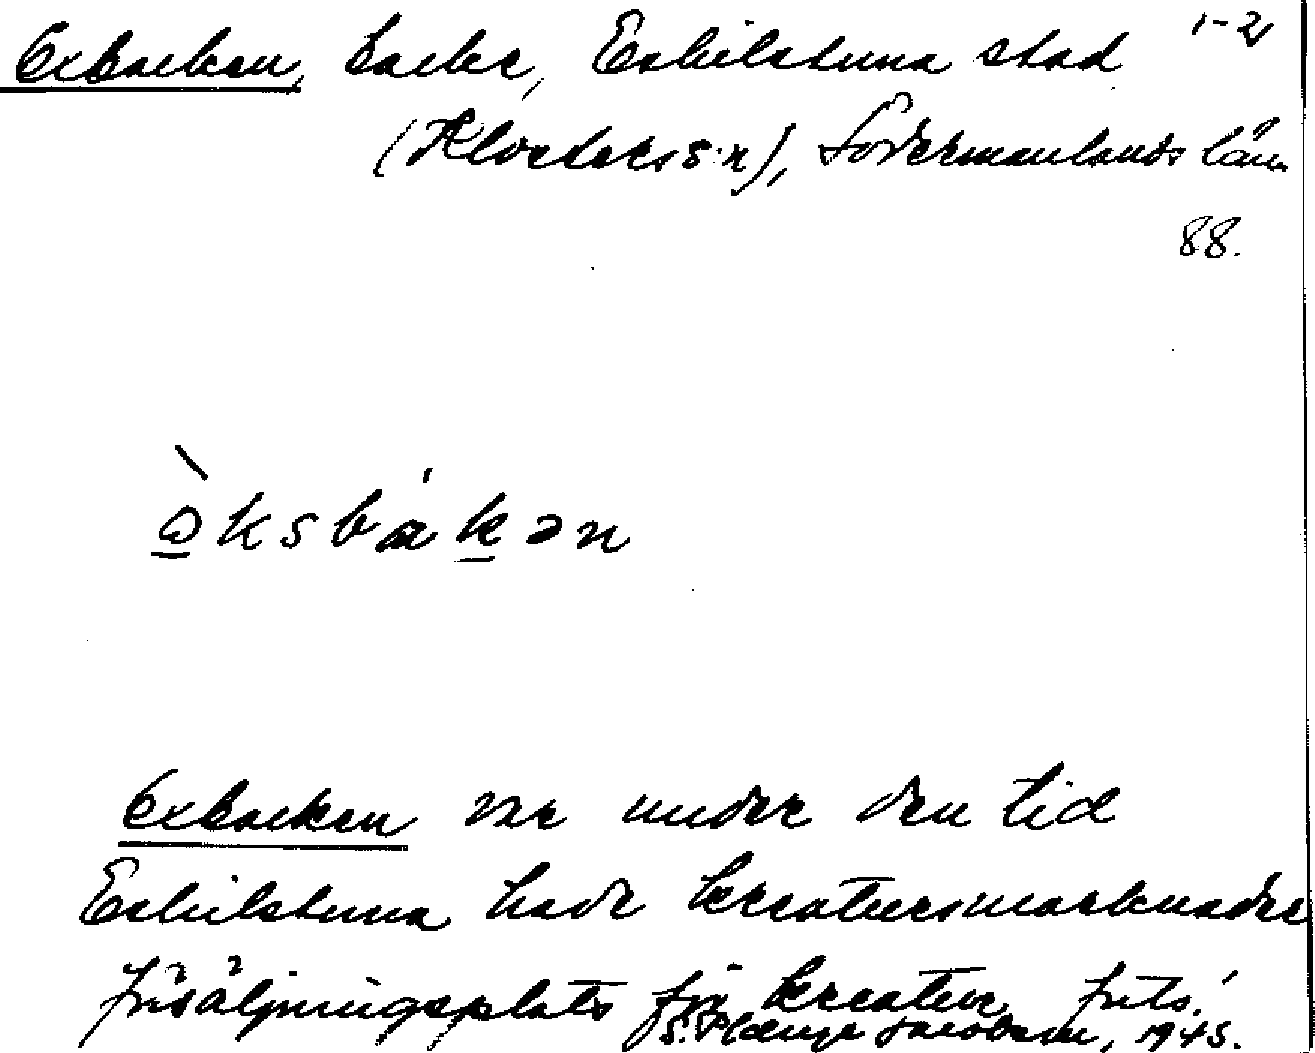 Oxbacken, backe, Eskilstuna stad 1-2
(Klosters s:n), Södermanlands län
88.
ò̱ksbáḵən
Oxbacken var under den tid
Eskilstuna hade kreatursmarknader
försäljningsplats för kreatur. forts.
S. Jacobson, 1945.